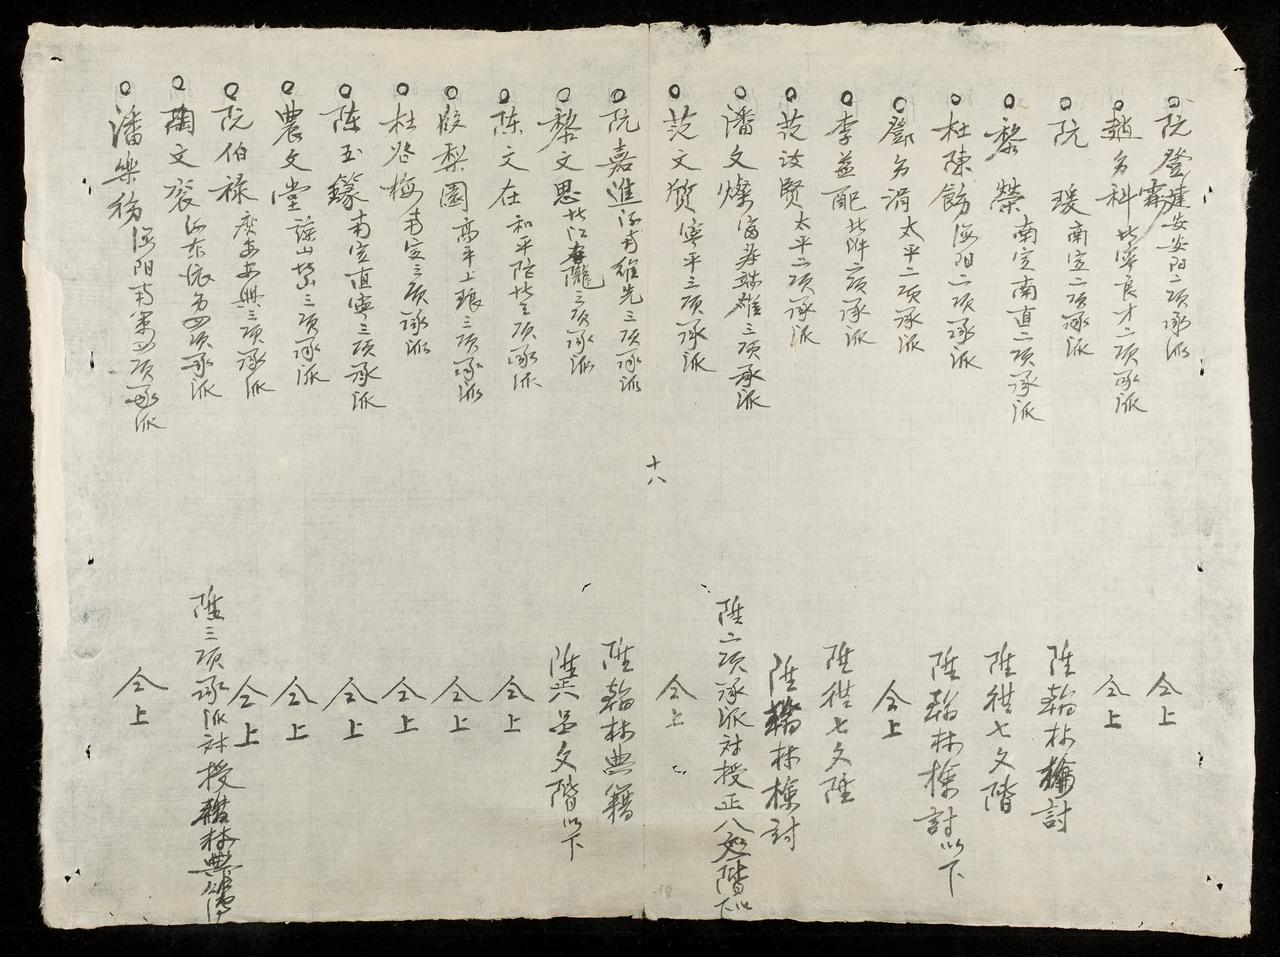 阮登霱建安安阳二项承派 仝上
趙努科北寧良才二项承派 仝上
阮瑗南定二项承派 陞翰林檢討
黎榮南定南直二项承派 陞從七文階
杜陳餙海阳二项承派 陞翰林檢討以下
鄧努涓太平二项承派 仝上
李益配北泮二项承派 陞從七文陞
范汝賢太平二项承派 陞翰林檢討
潘文燦海昜端雄三项承派 陞二项承派对授正八文階以下
范文質寧平三项承派 仝上
十八
阮嘉進河南維先三项承派 陞翰林典籍
黎文思北江隴三项承派 陞正八品文階以下
陈文在和平陀北三项承派 仝上
段梨園高平上琅三项承派 仝上
杜啓梅南定三项承派 仝上
陈玉鑅南定直寧三项承派 仝上
農文堂諒山三项承派 仝上
阮伯禄廣安安興三项承派 仝上
陶文袞河东四项承派 陞三项承派对授翰林典簿
潘樂務海阳南策四项承派 仝上